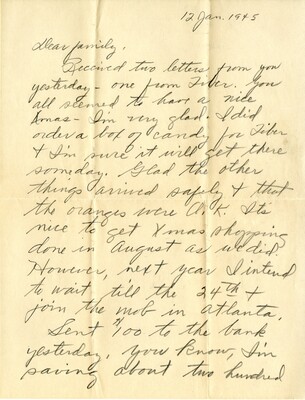 12 Jan. 1945
Dear family,
Received two letters from you
yesterday - one from Tiber. You
all seemed to have a nice
Xmas - I'm very glad. I did
order a box of candy for Tiber
& I'm sure it will get there
someday. Glad the other
things arrived safely & that
the oranges were O.K. It's
nice to get Xmas shopping
done in August as we did.
However, next year I intend
to wait till the 24th &
join the mob in Atlanta.
Sent $100 to the bank
yesterday. You know, I'm
saving about two hundred